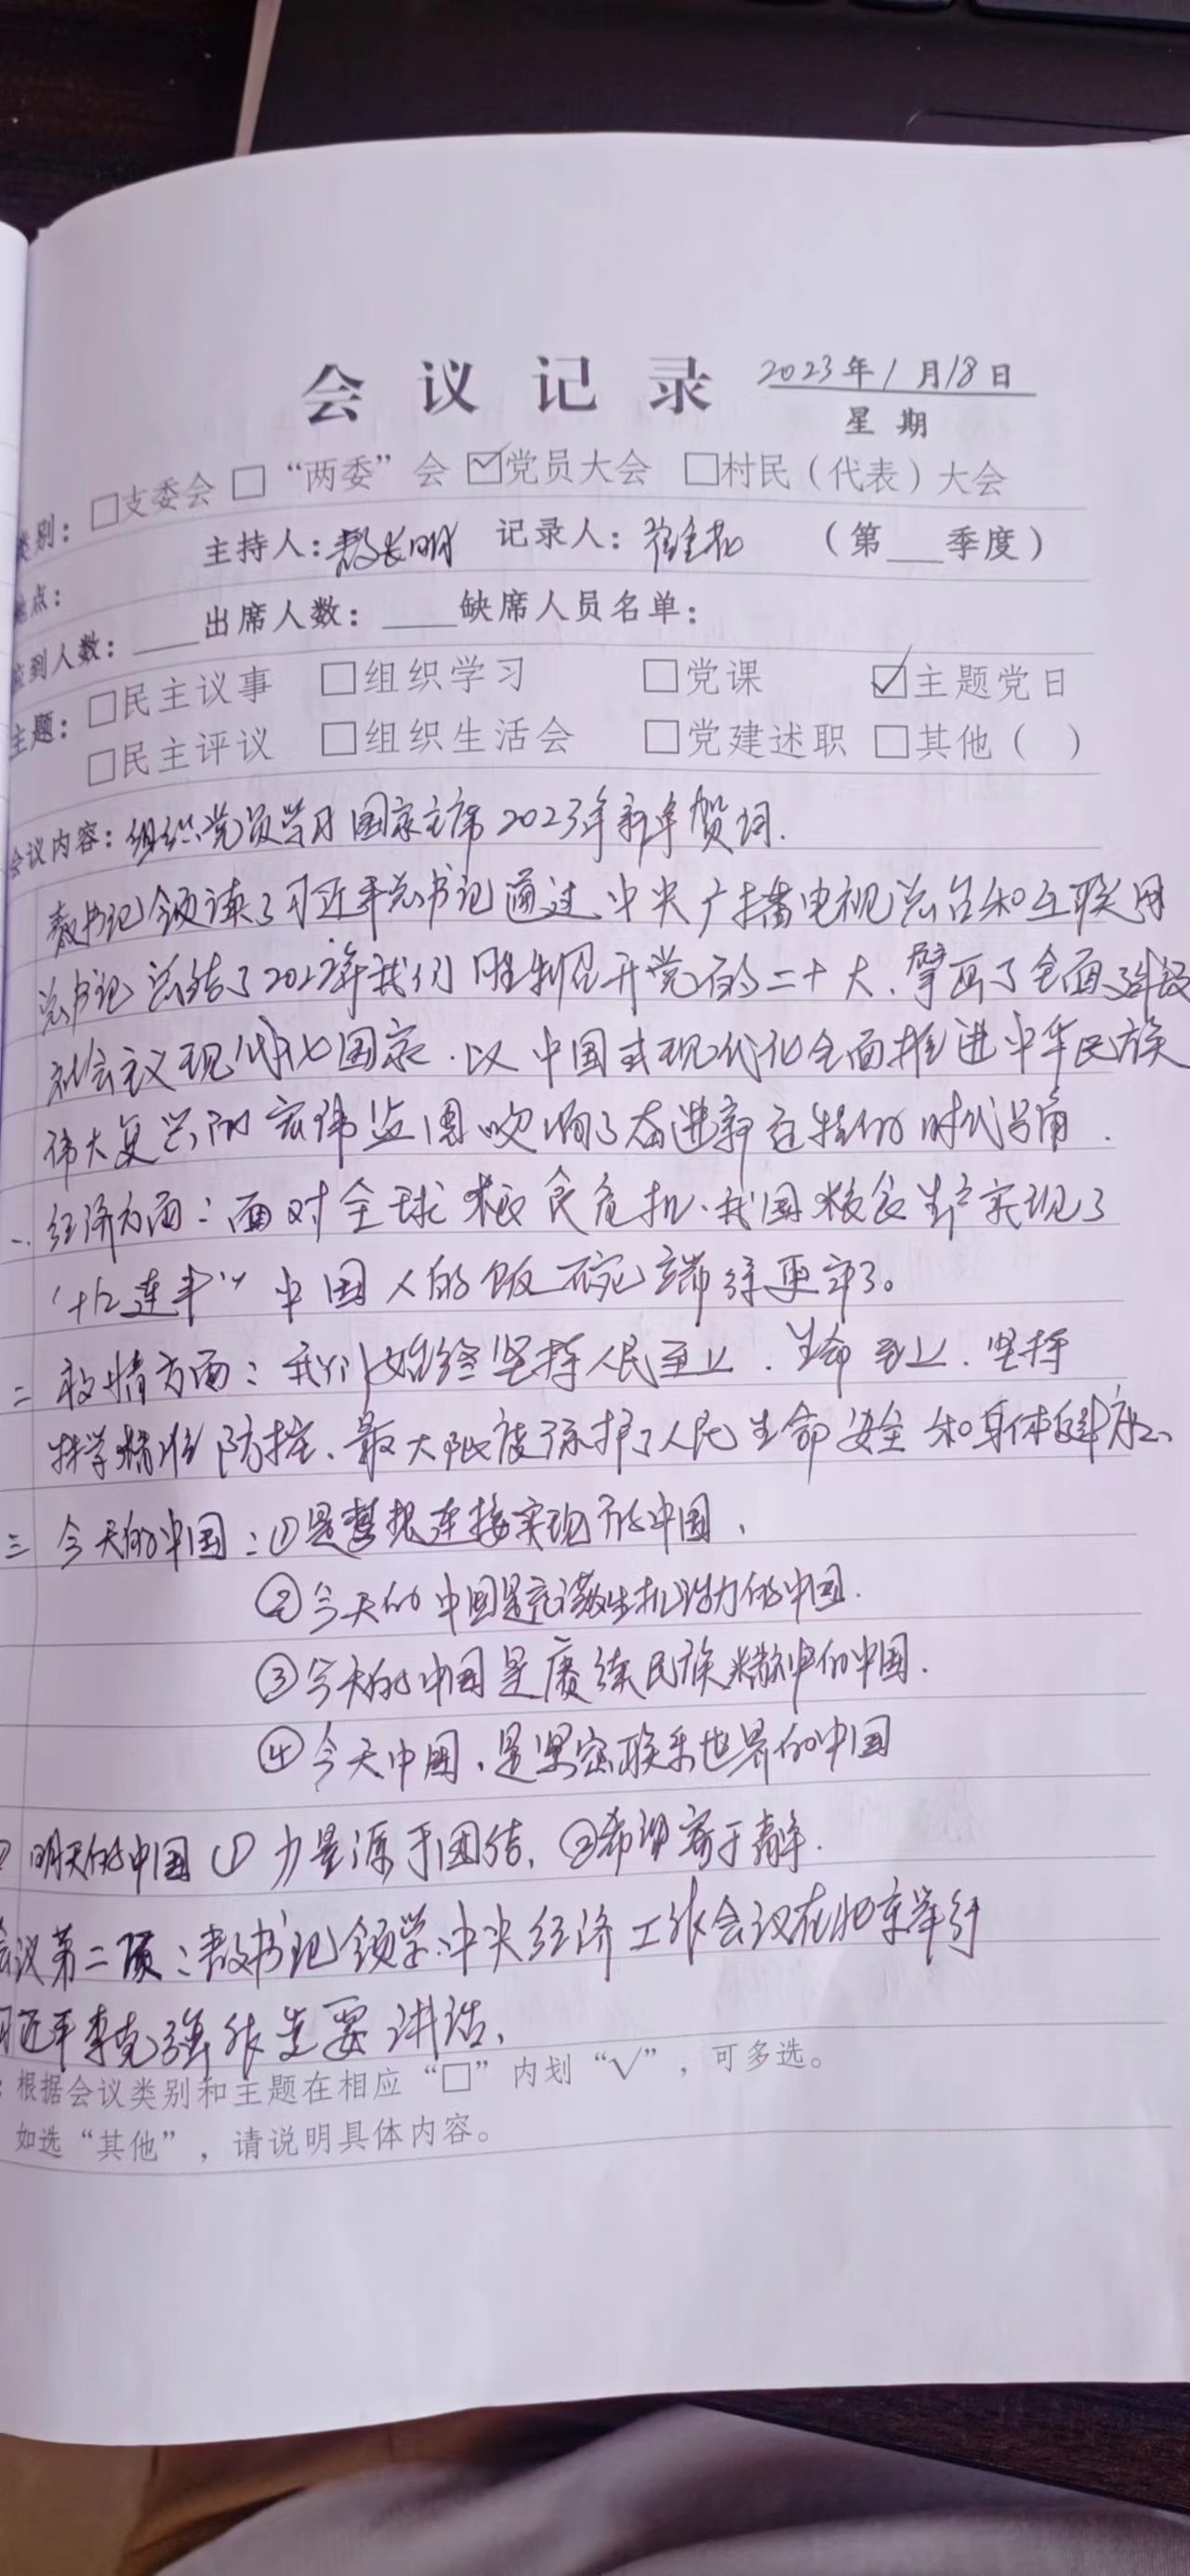 会议记录 2023年1月18日
星期
类别：□支委会 □“两委”会 ☑党员大会 □村民（代表）大会
地点： 主持人： 长明 记录人： （第__季度）
应到人数：____出席人数：____缺席人员名单：
主题：□民主议事 □组织学习 □党课 ☑主题党日
□民主评议 □组织生活会 □党建述职 □其他（ ）
会议内容：组织党员学习国家主席2023年新年贺词.
书记领读了习近平总书记通过中央广播电视总台和互联网
总书记总结了2022年我们胜利召开党的二十大、擘画了全面建设
社会主义现代化国家.以中国式现代化全面推进中华民族
伟大复兴的宏伟蓝图吹响了奋进新征程的时代号角.
一.经济方面：面对全球粮食危机、我国粮食生产实现了
“十九连丰”中国人的饭碗端得更牢了。
二 疫情方面：我们始终坚持人民至上.生命至上.坚持
科学精准防控、最大限度保护了人民生命安全和身体健康、
三 今天的中国：①是梦想连接实现的中国、
②今天的中国是充满生机活力的中国.
③今天的中国是赓续民族精神的中国.
④今天中国、是紧密联系世界的中国
明天的中国①力量源于团结、②希望寄于青年.
会议第二项：书记领学:中央经济工作会议在北京举行
习近平李克强作重要讲话、
：根据会议类别和主题在相应“□”内划“√”，可多选。
如选“其他”，请说明具体内容。